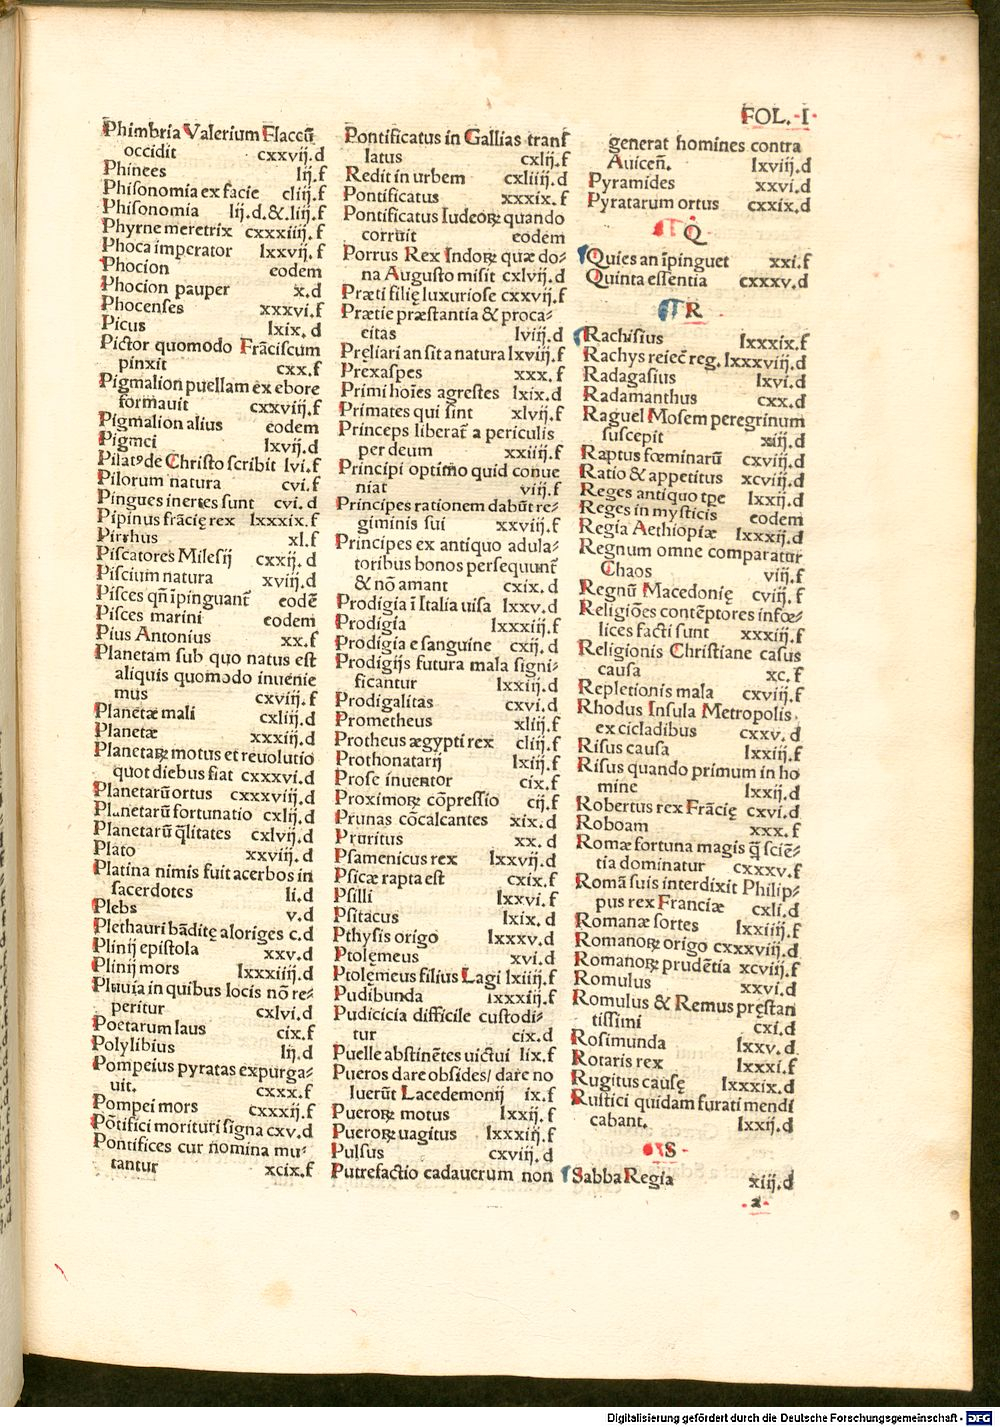 FOL. I
Phimbria Valerium Flaccū
occidit cxxvij.d
Phinees lij.f
Phisonomia ex facie cliij.f
Phisonomia lij.d.&.liij.f
Phyrne meretrix cxxxiiij.f
Phoca imperator lxxvij.f
Phocion eodem
Phocion pauper x.d
Phocenses xxxvi.f
Picus lxix.d
Pictor quomodo Frāciscum
pinxit cxx.f
Pigmalion puellam ex ebore
formauit cxxviij.f
Pigmalion alius eodem
Pigmei lxvij.d
Pilatꝰ de Christo scribit lvi.f
Pilorum natura cvi.f
Pingues inertes sunt cvi.d
Pipinus frācię rex lxxxix.f
Pirrhus xl.f
Piscatores Milesij cxxij.d
Piscium natura xviij.d
Pisces qñ īpinguant̄ eodē
Pisces marini eodem
Pius Antonius xx.f
Planetam sub quo natus est
aliquis quomodo inuenie
mus cxviij.f
Planetæ mali cxliij.d
Planetæ xxxiij.d
Planetaꝝ motus et reuolutio
quot diebus fiat cxxxvi.d
Planetarū ortus cxxxviij.d
Planetarū fortunatio cxlij.d
Planetarū q̄litates cxlvij.d
Plato xxviij.d
Platina nimis fuit acerbos in
sacerdotes li.d
Plebs v.d
Plethauri bāditę aloriges c.d
Plinij epistola xxv.d
Plinij mors lxxxiiij.d
Pluuia in quibus locis nō re⸗
peritur cxlvi.d
Poetarum laus cix.f
Polylibius lij.d
Pompeius pyratas expurga⸗
uit. cxxx.f
Pompei mors cxxxij.f
Pōtifici morituri signa cxv.d
Pontifices cur nomina mu⸗
tantur xcix.f
Pontificatus in Gallias transf
latus cxlij.f
Redit in urbem cxliiij.d
Pontificatus xxxix.f
Pontificatus Iudeoꝝ quando
corruit eodem
Porrus Rex Indoꝝ quæ do⸗
na Augusto misit cxlvij.d
Præti filię luxuriose cxxvij.f
Prætie præstantia & proca⸗
citas lviij.d
Preliari an sit a natura lxviij.f
Prexaspes xxx.f
Primi hoīes agrestes lxix.d
Primates qui sint xlvij.f
Princeps liberat̄ a periculis
per deum xxiiij.f
Principi optimo quid conue
niat viij.f
Principes rationem dabūt re⸗
giminis sui xxviij.f
Principes ex antiquo adula⸗
toribus bonos persequunt̄
& nō amant cxix.d
Prodigia ī Italia uisa lxxv.d
Prodigia lxxxiij.f
Prodigia e sanguine cxij.d
Prodigijs futura mala signi⸗
ficantur lxxiij.d
Prodigalitas cxvi.d
Prometheus xliij.f
Protheus ægypti rex cliij.f
Prothonatarij lxiij.f
Prose inuentor cix.f
Proximoꝝ cōpressio cij.f
Prunas cōcalcantes xix.d
Pruritus xx.d
Psamenicus rex lxxvij.d
Psicæ rapta est cxix.f
Psilli lxxvi.f
Psitacus lxix.d
Pthysis origo lxxxv.d
Ptolęmeus xvi.d
Ptolęmeus filius Lagi lxiiij.f
Pudibunda lxxxiij.f
Pudicicia difficile custodi⸗
tur cix.d
Puelle abstinētes uictui lix.f
Pueros dare obsides/ dare no
luerūt Lacedemonij ix.f
Pueroꝝ motus lxxij.f
Pueroꝝ uagitus lxxxiij.f
Pulsus cxviij.d
Putrefactio cadauerum non
generat homines contra
Auiceñ. lxviij.d
Pyramides xxvi.d
Pyratarum ortus cxxix.d
Q
Quies an īpinguet xxi.f
Quinta essentia cxxxv.d
R
Rachisius lxxxix.f
Rachys reiec̄ reg. lxxxviij.d
Radagasius lxvi.d
Radamanthus cxx.d
Raguel Mosem peregrinum
suscepit xiij.d
Raptus fœminarū cxviij.d
Ratio & appetitus xcviij.d
Reges antiquo tpe lxxij.d
Reges in mysticis eodem
Regia Aethiopiæ lxxxij.d
Regnum omne comparatur
Chaos viij.f
Regnū Macedonię cviij.f
Religiōes contēptores infœ⸗
lices facti sunt xxxiij.f
Religionis Christiane casus
causa xc.f
Repletionis mala cxviij.f
Rhodus Insula Metropolis
ex cicladibus cxxv.d
Risus causa lxxiij.f
Risus quando primum in ho
mine lxxij.d
Robertus rex Frācię cxvi.d
Roboam xxx.f
Romæ fortuna magis q̄ sciē⸗
tia dominatur cxxxv.f
Romā suis interdixit Philip⸗
pus rex Franciæ cxli.d
Romanæ sortes lxxiiij.f
Romanoꝝ origo cxxxviij.d
Romanoꝝ prudētia xcviij.f
Romulus xxvi.d
Romulus & Remus pręstan
tissimi cxi.d
Rosimunda lxxv.d
Rotaris rex lxxxi.f
Rugitus causę lxxxix.d
Rustici quidam furati mendi
cabant. lxxij.d
S
Sabba Regia xiij.d
a
Digitalisierung gefördert durch die Deutsche Forschungsgemeinschaft - DFG